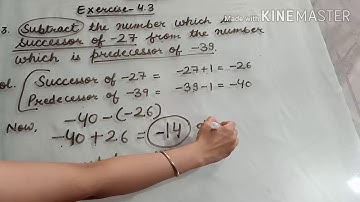 Exercise - 4.3
Made with KINEMASTER
3. Subtract the number which is
successor of -27 from the number
which is predecessor of -39.
Sol. Successor of -27 = -27+1 = -26
Predecessor of -39 = -39-1 = -40
-40-(-26)
Now, -40+26 = -14